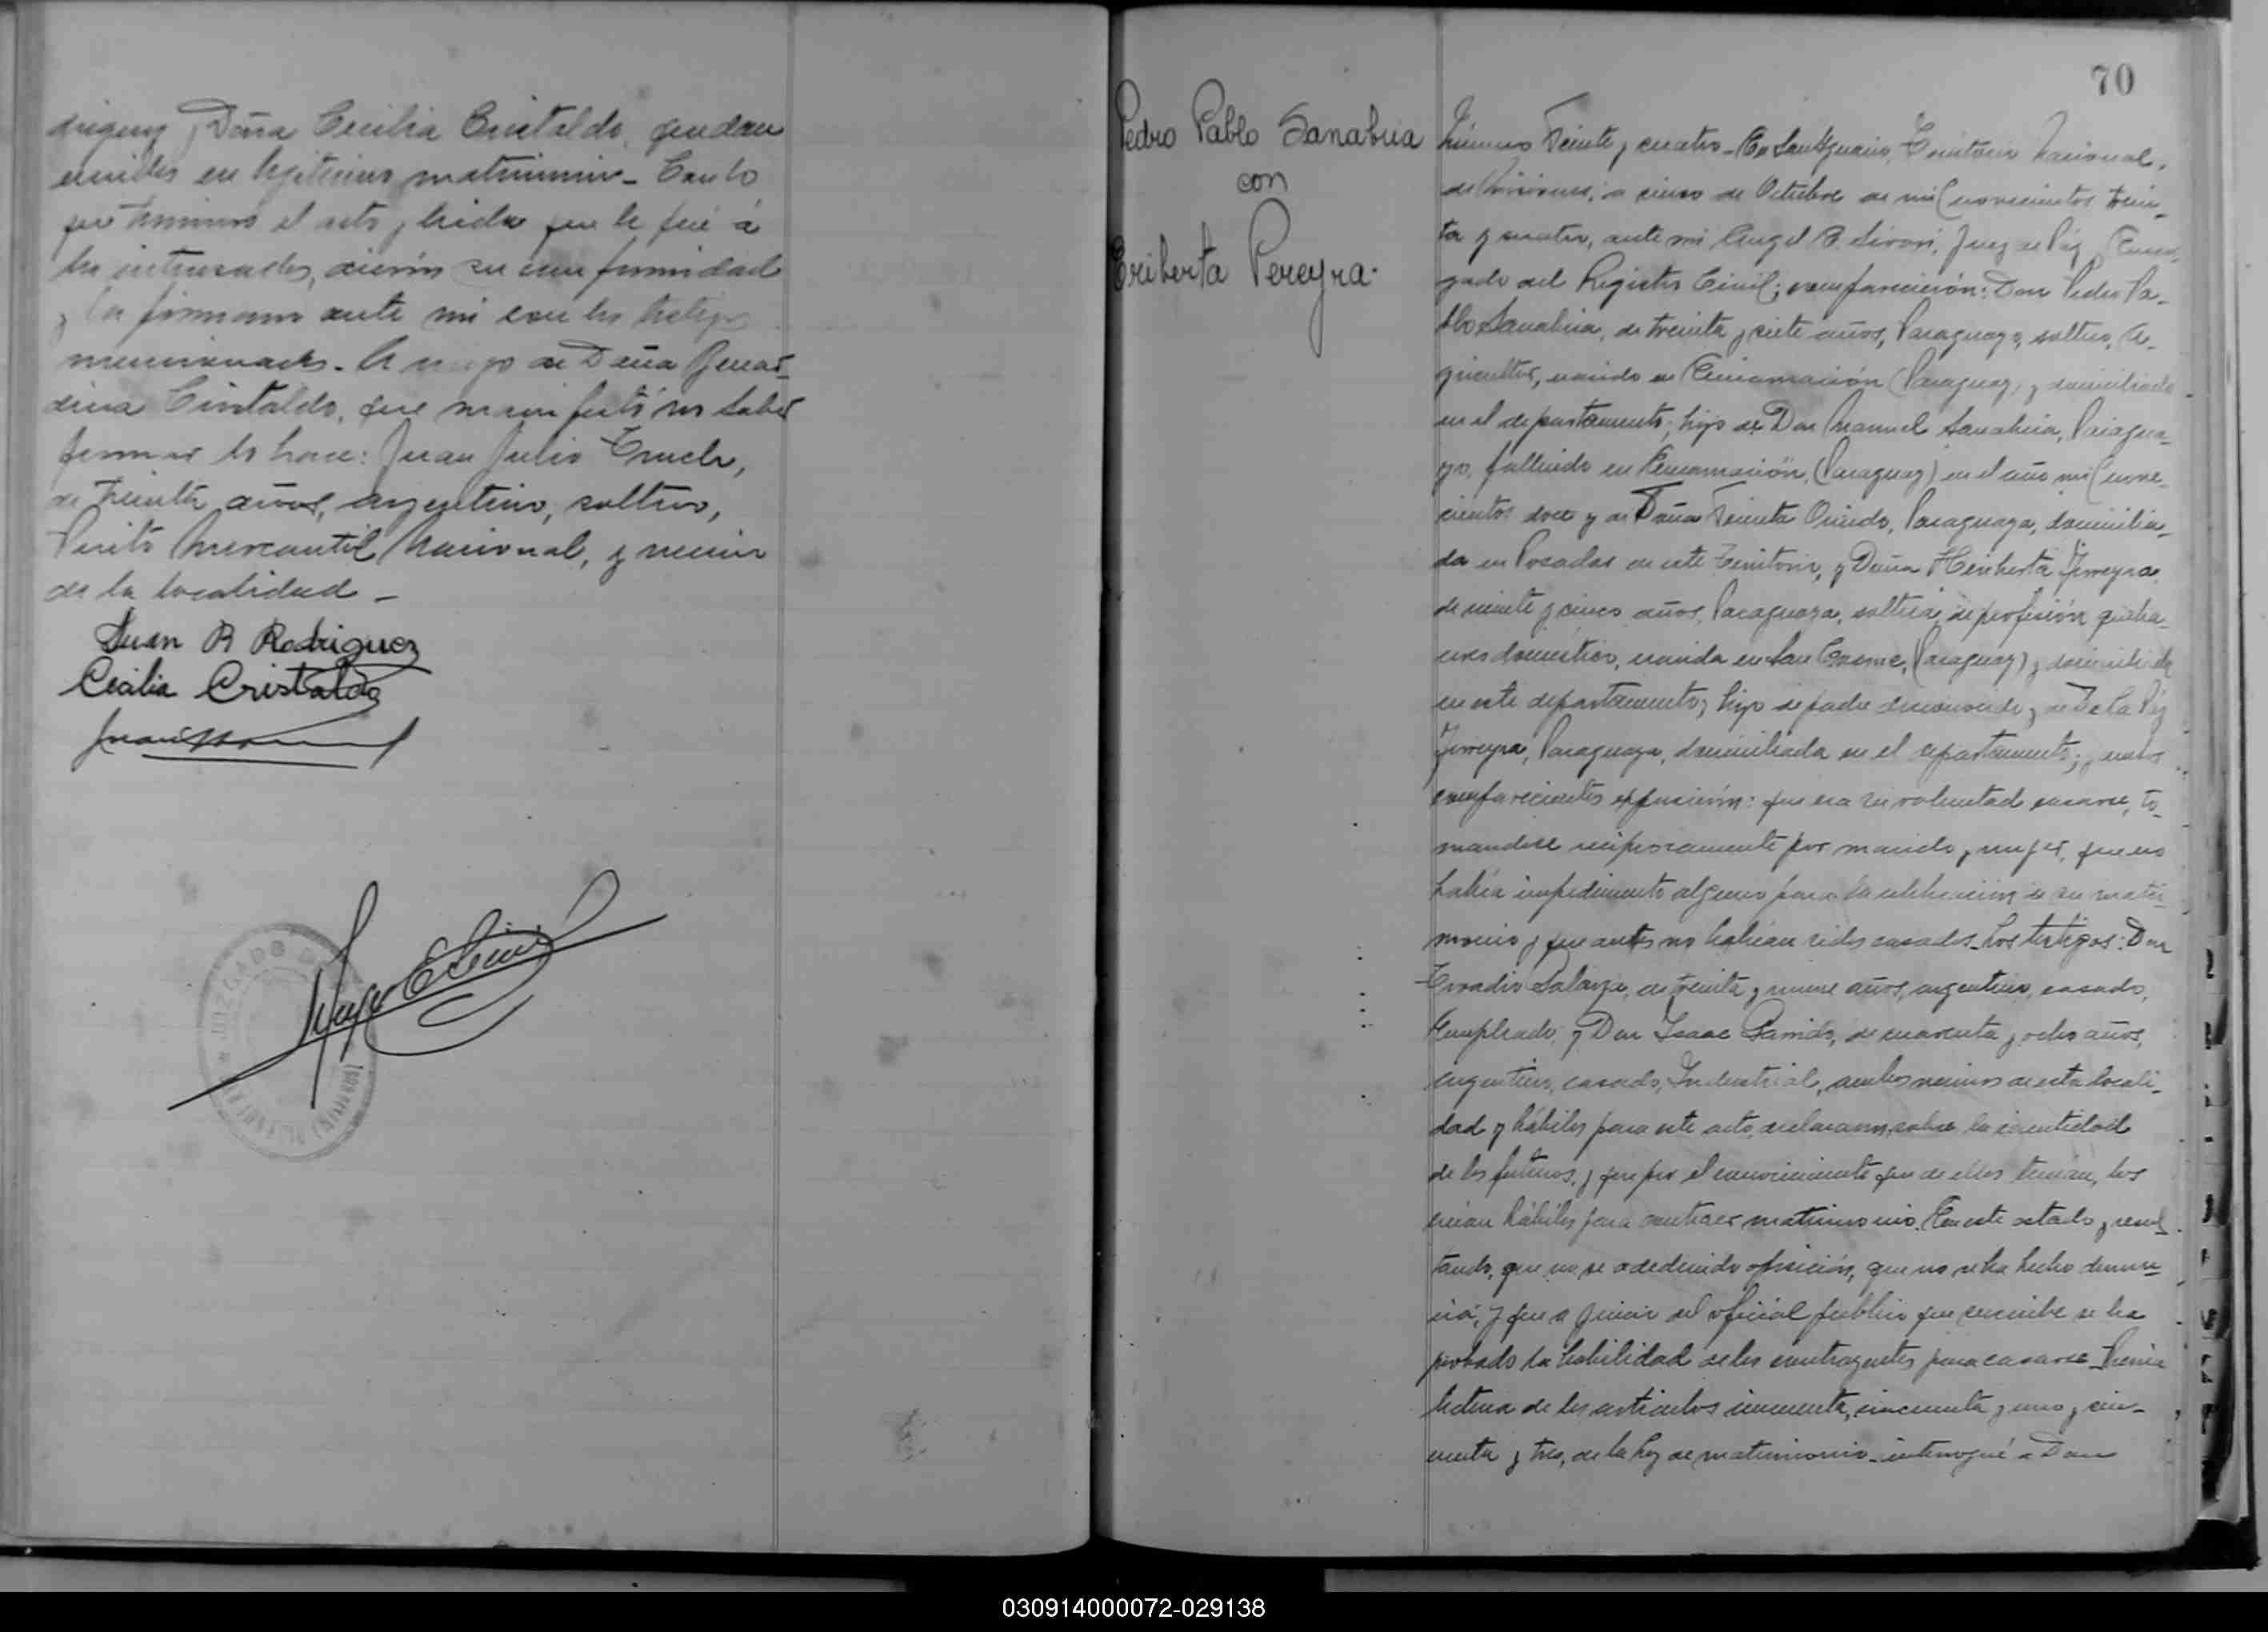 driguez y Doña Cecilia Cristaldo, quedan
unidos en legítimo matrimonio_ Con lo
que terminó el acto y leida que le fué á
los interesados, dieron su conformidad
y la firmaron ante mi con los testigos
mencionados_ A ruego de Doña Genar-
dina Cristaldo, que manifestó no saber
firmar lo hace: Juan Julio
de treinta años, argentino, soltero,
Perito Mercantil Nacional, y vecino
de la localidad_
Juan R Rodriguez
Cecilia Cristaldo
JUZGADO DE
70
Pedro Pablo Sanabria
con
Eriberta Pereyra.
Número Treinta y cuatro_ En San Ignacio, Territorio Nacional,
de Misiones, a cinco de Octubre de mil novecientos trein-
ta y cuatro, ante mi Angel E. Sivori, Juez de Páz y Encar-
gado del Registro Civil; comparecieron: Don Pedro Pa-
blo Sanabria, de treinta y siete años, Paraguayo, soltero, A-
gricultor, nacido en Encarnación (Paraguay) y domiciliado
en el departamento; hijo de Don Manuel Sanabria, Paragua-
yo, fallecido en Encarnación, (Paraguay) en el año mil nove-
cientos doce y de Doña Oviedo, Paraguaya, domicilia-
da en Posadas en este Territorio, y Doña Heriberta Ferreyra,
de veinte y cinco años, Paraguaya, soltera, de profesión queha-
ceres domésticos, nacida en San Cosme, (Paraguay) y domiciliada
en este departamento; hija de padre desconocido y de De la Páz
Ferreyra, Paraguaya, domiciliada en el departamento; y estos
comparecientes expusieron: que era su voluntad casarse, to-
mandose reciprocamente por marido y mujer, que no
había impedimento alguno para la celebración de su matri-
monio y que antes no habían sido casados_ Los testigos: Don
Salarza, de treinta y nueve años, argentino, casado,
Empleado, y Don Isaac Garrido, de cuarenta y ocho años,
argentino, casado, Industrial, ambos vecinos de esta locali-
dad y hábiles para este acto, declararon, sobre la identidad
de los futuros, y que por el conocimiento que de ellos tenian, los
creian hábiles para contraer matrimonio. En este estado y resul-
tando, que no se a deducido oposición, que no se ha hecho denun-
cia, y que a juicio del oficial público que suscribe se ha
probado la habilidad de los contrayentes para casarse_ Previa
lectura de los articulos cincuenta, cincuenta y uno y cin-
cuenta y tres, de la ley de matrimonio_ interrogué a Don
030914000072-029138